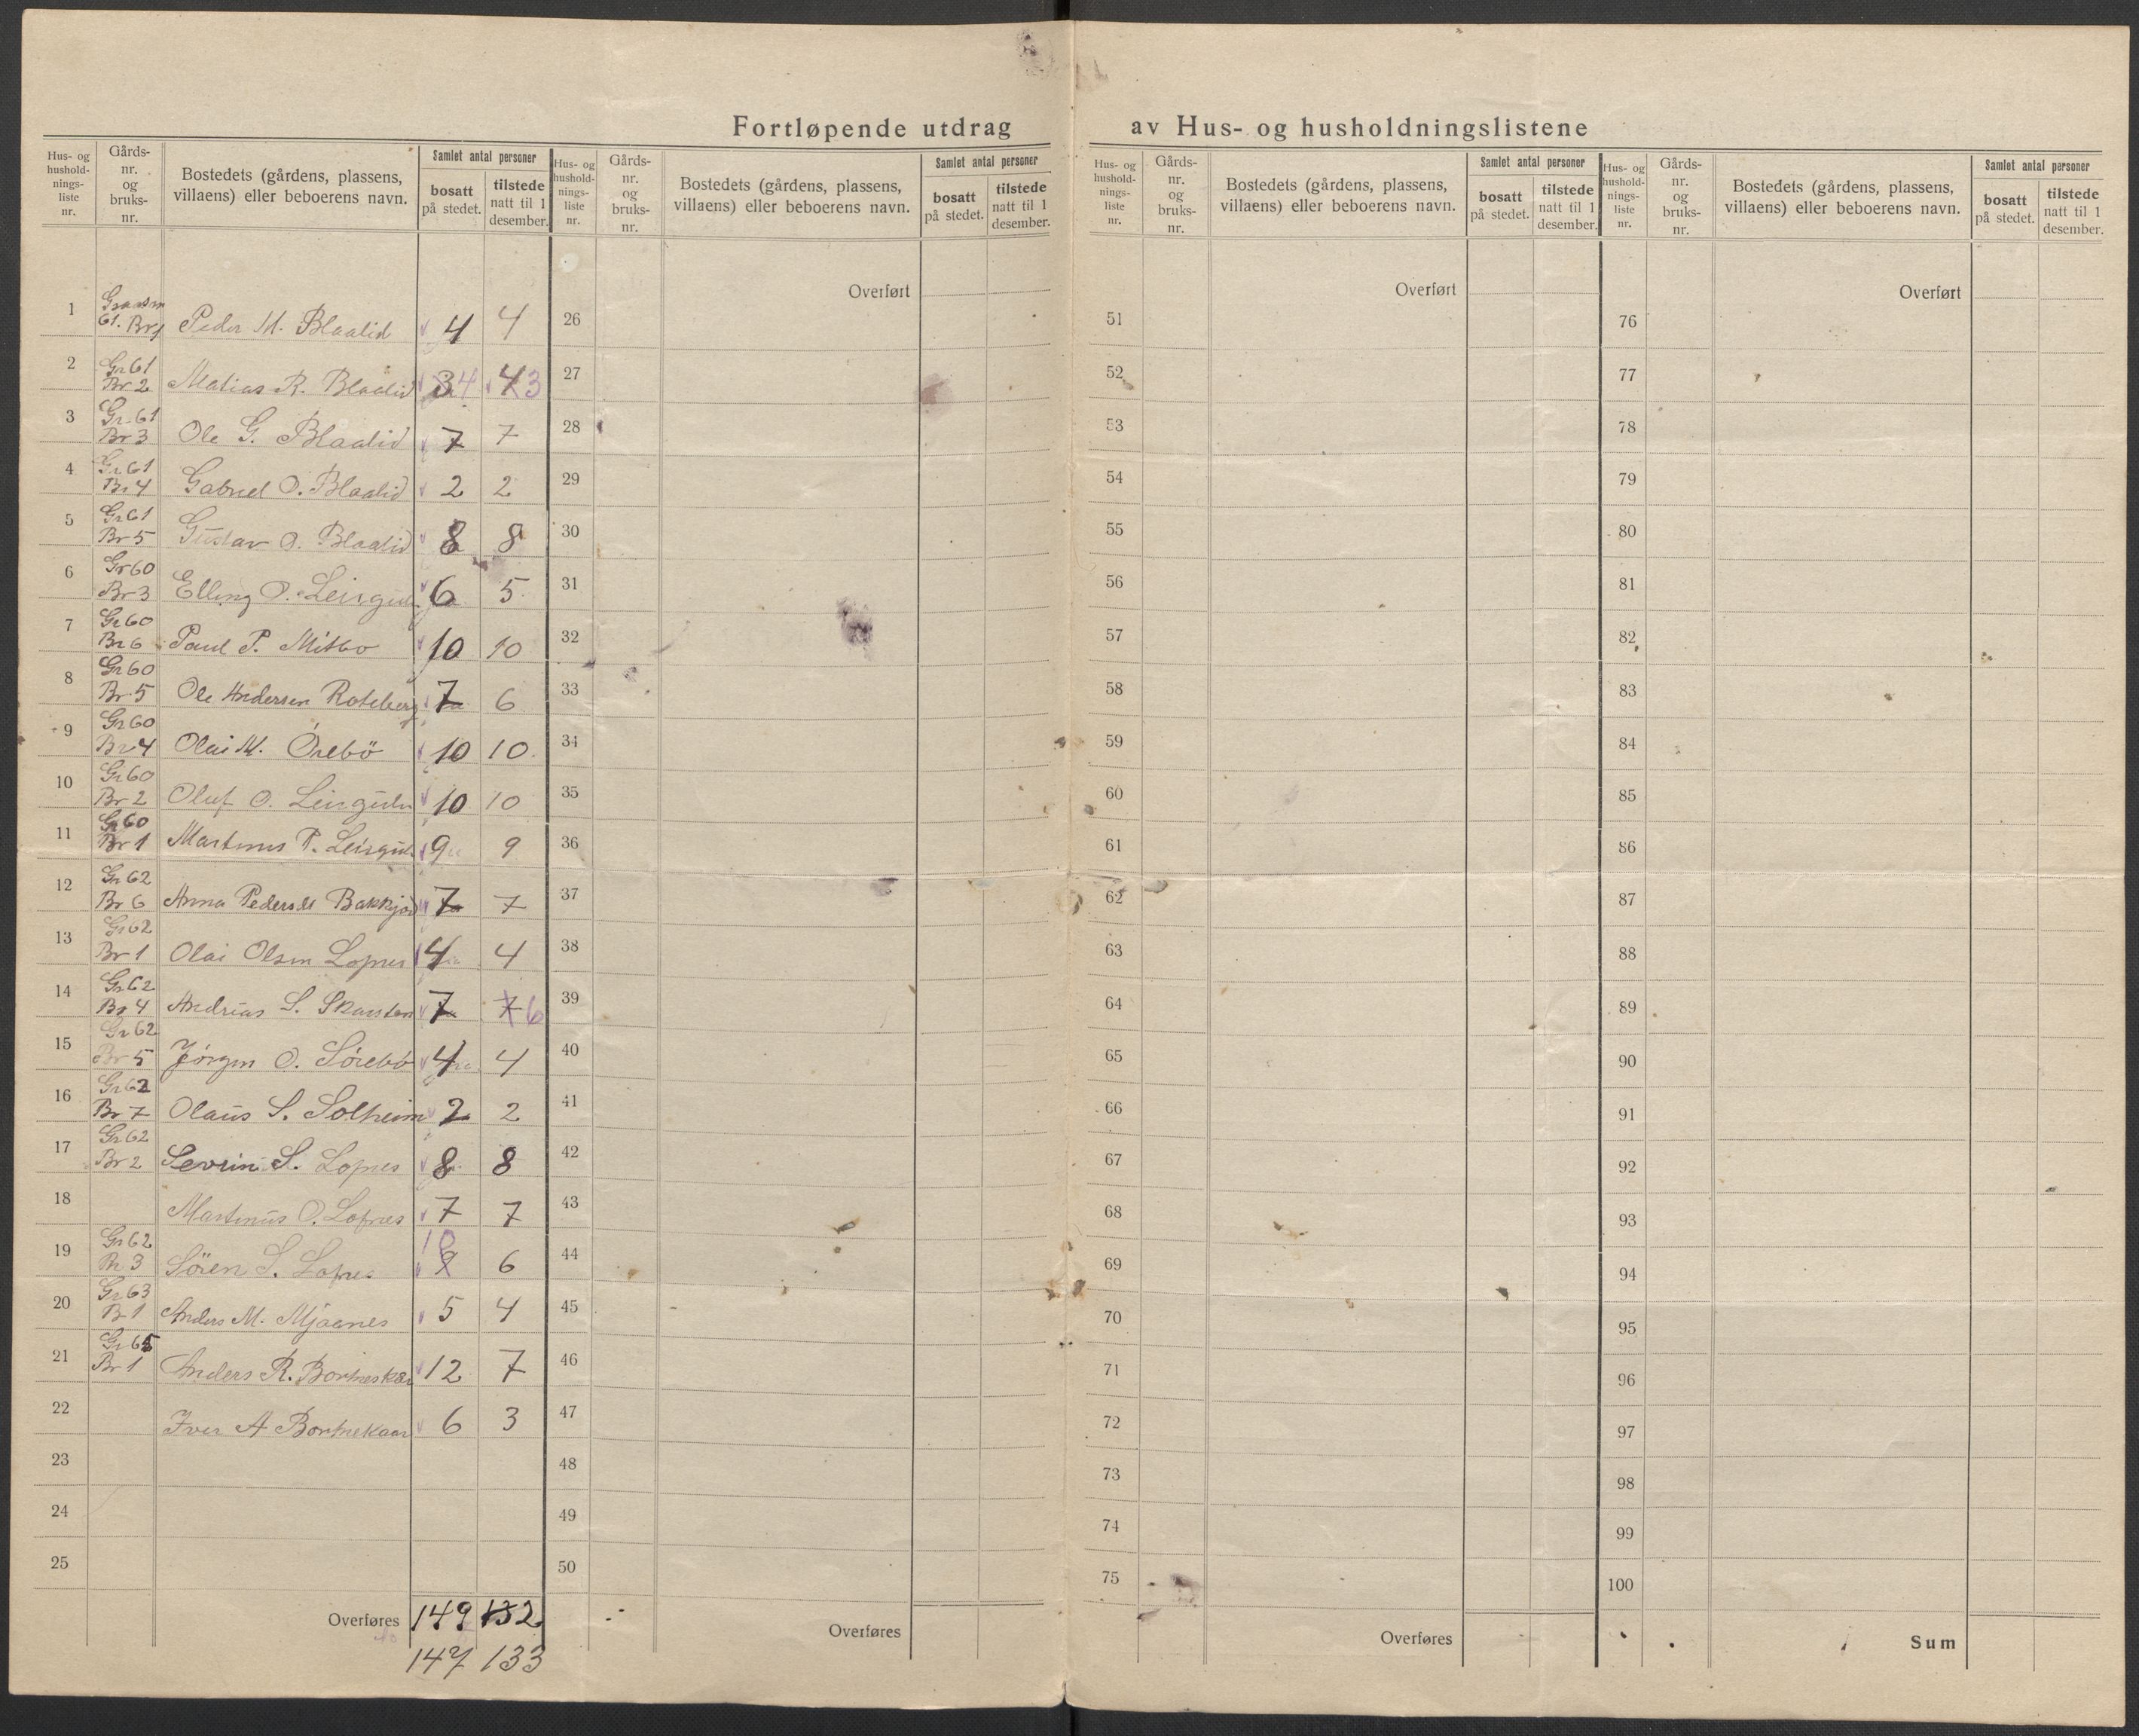 Fortløpende utdrag av Hus- og husholdningslistene
Hus- og hushold-nings-liste nr. Gårds-nr. og bruks-nr. Bostedets (gårdens, plassens, villaens) eller beboerens navn. Samlet antal personer bosatt på stedet. tilstede natt til 1 desember.
1 61. Br 1 Peder M. Blaalid 4 4
2 Gr 61 Br 2 Matias R. Blaalid 3 4 4 3
3 Gr 61 Br 3 Ole G. Blaalid 7 7
4 Gr 61 Br 4 Gabriel O. Blaalid 2 2
5 Gr 61 Br 5 Gustav O. Blaalid 8 8
6 Gr 60 Br 3 Elling O. 6 5
7 Gr 60 Br 6 Paul P. Mitbo 10 10
8 Gr 60 Br 5 Ole Andersen Roteberg 7 6
9 Gr 60 Br 4 Olai M. Örebö 10 10.
10 Gr 60 Br 2 Oluf O. 10 10
11 Gr 60 Br 1 Martinus P. 9 9
12 Gr 62 Br 6 Anna 7 7
13 Gr 62 Br 1 Olai Olsen Lopnes 4 4
14 Gr 62 Br 4 Andrias S. Skarsten 7 7 6
15 Gr 62 Br 5 Jörgen O. Sörebö 4 4
16 Gr 62 Br 7 Olaus S. Solheim 2 2
17 Gr 62 Br 2 Sevrin S. Lopnes 8 8
18 Martinus O. Lopnes 7 7
19 Gr 62 Br 3 Sören S. Lopnes 10 9 6
20 Gr 63 Br 1 Anders M. Mjaanes 5 4
21 Gr 65 Br 1 Anders R. 12 7
22 Iver A Bortnekaar 6 3
23
24
25
Overføres 149 132
147 133
Hus- og hushold-nings-liste nr. Gårds-nr. og bruks-nr. Bostedets (gårdens, plassens, villaens) eller beboerens navn. Samlet antal personer bosatt på stedet. tilstede natt til 1 desember.
Overført
26
27
28
29
30
31
32
33
34
35
36
37
38
39
40
41
42
43
44
45
46
47
48
49
50
Overføres
Hus- og hushold-nings-liste nr. Gårds-nr. og bruks-nr. Bostedets (gårdens, plassens, villaens) eller beboerens navn. Samlet antal personer bosatt på stedet. tilstede natt til 1 desember.
Overført
51
52
53
54
55
56
57
58
59
60
61
62
63
64
65
66
67
68
69
70
71
72
73
74
75
Overføres
Hus- og hushold-nings-liste nr. Gårds-nr. og bruks-nr. Bostedets (gårdens, plassens, villaens) eller beboerens navn. Samlet antal personer bosatt på stedet. tilstede natt til 1 desember.
Overført
76
77
78
79
80
81
82
83
84
85
86
87
88
89
90
91
92
93
94
95
96
97
98
99
100
Sum